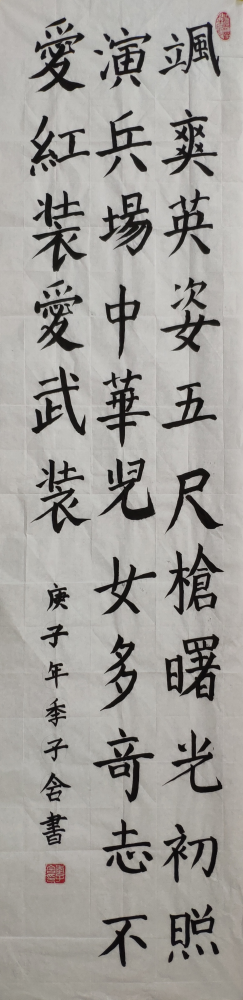 颯爽英姿五尺槍曙光初照
演兵場中華兒女多奇志不
愛紅装愛武装
庚子年季子舍書